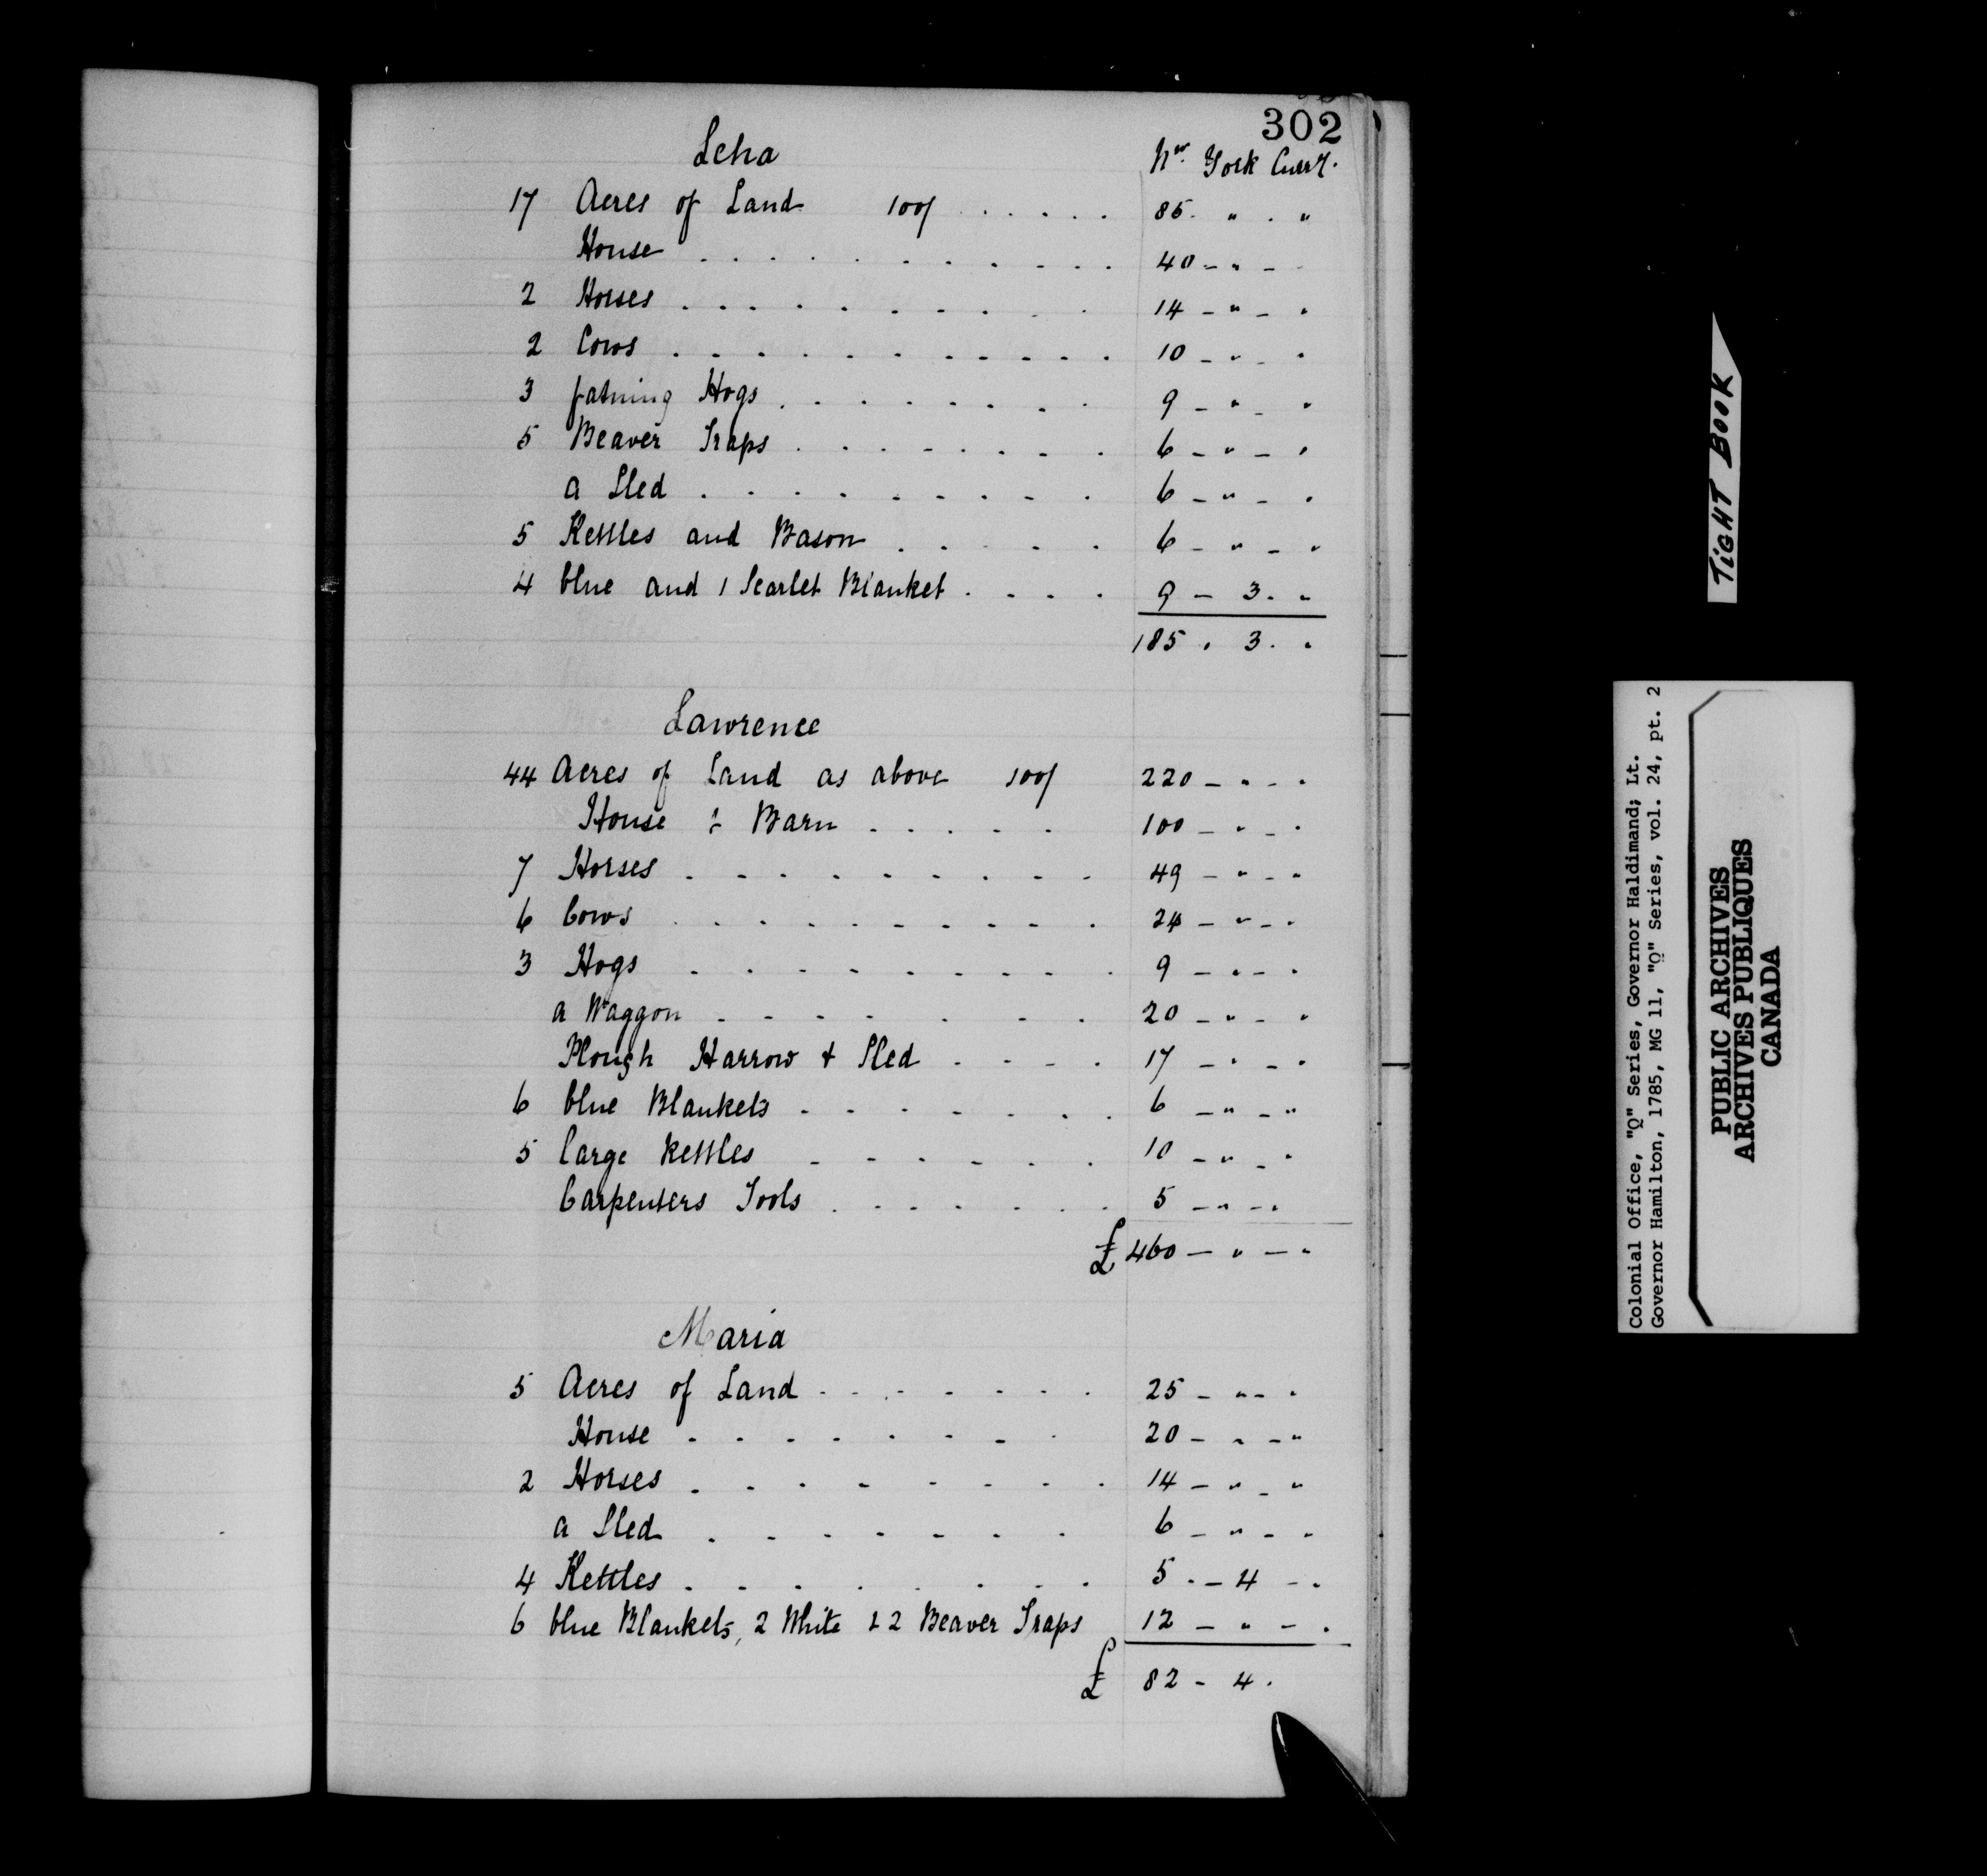 302
Leha
Nw. York Curry.
17 Acres of Land 100/ . . . . . 85. " . "
House . . . . . . . . . . 40 - " -
2 Horses . . . . . . . . . 14 - " - "
2 Cows . . . . . . . . . . 10 - " - "
3 fatning Hogs . . . . . . . 9 - " - "
5 Beaver Traps . . . . . . . 6 - " - "
a Sled . . . . . . . . . 6 - " - "
5 Kettles and Bason . . . . . 6 - " - "
4 blue and 1 Scarlet Blanket . . . . 9 - 3. "
185 . 3. "
Lawrence
44 Acres of Land as above 100/ 220 - " - "
House & Barn . . . . . 100 - " - "
7 Horses . . . . . . . . . 49 - " - "
6 Cows . . . . . . . . . 24 - " - "
3 Hogs . . . . . . . . . 9 - " - "
a Waggon . . . . . . . . 20 - " - "
Plough Harrow + Sled . . . . 17 - " - "
6 blue Blankets . . . . . . . 6 - " - "
5 large Kettles . . . . . . 10 - " - "
Carpenters Tools . . . . . . . 5 - " - "
£ 460 - " - "
Maria
5 Acres of Land . . . . . . . 25 - " - "
House . . . . . . . . 20 - " - "
2 Horses . . . . . . . . . 14 - " - "
a Sled . . . . . . . . 6 - " - "
4 Kettles . . . . . . . . 5 . - 4 - "
6 blue Blankets, 2 White & 2 Beaver Traps 12 - " - "
£ 82 - 4 .
TIGHT BOOK
Colonial Office, "Q" Series, Governor Haldimand; Lt.
Governor Hamilton, 1785, MG 11, "Q" Series, vol. 24, pt. 2
PUBLIC ARCHIVES
ARCHIVES PUBLIQUES
CANADA